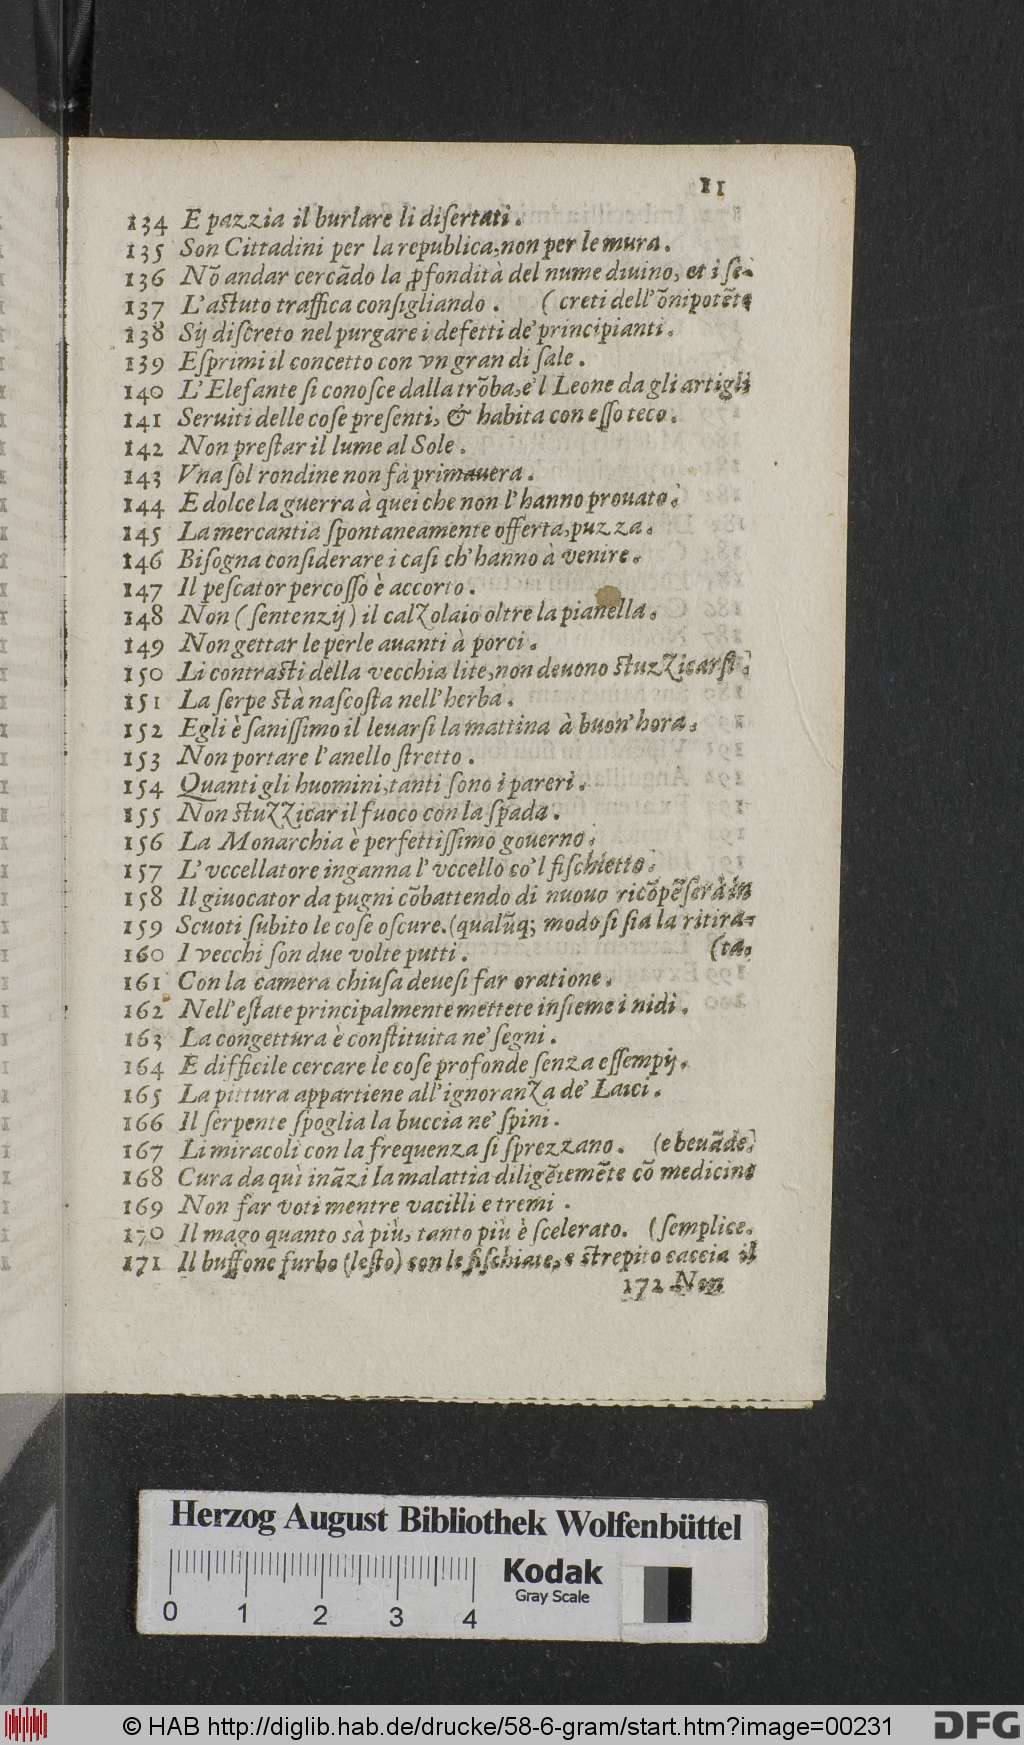 11
134 E pazzia il burlare li diſertati.
135 Son Cittadini per la republica, non per le mura.
136 Nõ andar cercãdo la ꝓfondità del nume diuino, et i ſe-
137 L'aſtuto traffica conſigliando. (creti dell'õnipotẽte
138 Sij diſcreto nel purgare i defetti de' principianti.
139 Eſprimi il concetto con vn gran di ſale.
140 L'Elefante ſi conoſce dalla trõba, e'l Leone da gli artigli
141 Seruiti delle coſe preſenti, & habita con eſſo teco.
142 Non preſtar il lume al Sole.
143 Vna ſol rondine non fà primauera.
144 E dolce la guerra à quei che non l'hanno prouato.
145 La mercantia ſpontaneamente offerta, puzza.
146 Biſogna conſiderare i caſi ch'hanno à venire.
147 Il peſcator percoſſo è accorto.
148 Non (ſentenzij) il calzolaio oltre la pianella.
149 Non gettar le perle auanti à porci.
150 Li contraſti della vecchia lite, non deuono ſtuzzicarſi.
151 La ſerpe ſtà naſcoſta nell'herba.
152 Egli è ſaniſſimo il leuarſi la mattina à buon'hora.
153 Non portare l'anello ſtretto.
154 Quanti gli huomini, tanti ſono i pareri.
155 Non ſtuzzicar il fuoco con la ſpada.
156 La Monarchia è perfettiſſimo gouerno.
157 L'vccellatore inganna l'vccello co'l fiſchietto.
158 Il giuocator da pugni cõbattendo di nuouo ricõpẽſerà in
159 Scuoti ſubito le coſe oſcure. (qualũq; modo ſi ſia la ritira-
160 I vecchi ſon due volte putti. (ta.
161 Con la camera chiuſa deueſi far oratione.
162 Nell'eſtate principalmente mettete inſieme i nidi.
163 La congettura è conſtituita ne' ſegni.
164 E difficile cercare le coſe profonde ſenza eſſempij.
165 La pittura appartiene all'ignoranza de' Laici.
166 Il ſerpente ſpoglia la buccia ne' ſpini.
167 Li miracoli con la frequenza ſi ſprezzano. (e beuãde.
168 Cura da quì inãzi la malattia diligẽtemẽte cõ medicine
169 Non far voti mentre vacilli e tremi.
170 Il mago quanto sà più, tanto più è ſcelerato. (ſemplice.
171 Il buffone furbo (leſto) con le fiſchiate, e ſtrepito caccia il
172 Non
Herzog August Bibliothek Wolfenbüttel
Kodak
Gray Scale
0 1 2 3 4
© HAB http://diglib.hab.de/drucke/58-6-gram/start.htm?image=00231
DFG